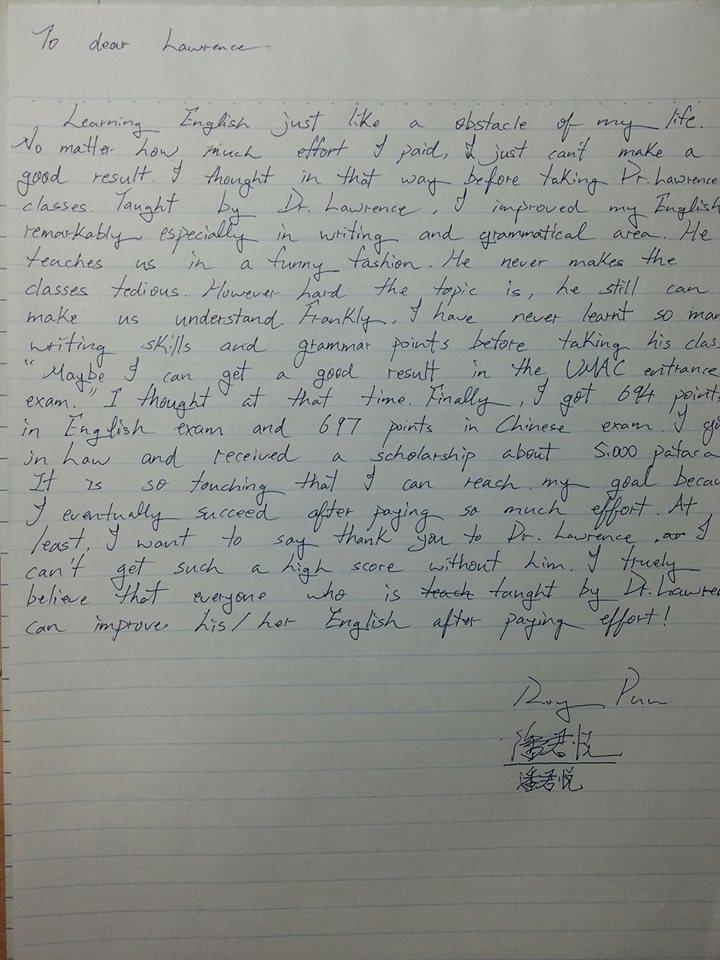 To dear Lawrence.
Learning English just like a obstacle of my life.
No matter how much effort I paid, I just can't make a
good result. I thought in that way before taking Dr. Lawrence
classes. Taught by Dr. Lawrence, I improved my English
remarkably, especially in writing and grammatical area. He
teaches us in a funny fashion. He never makes the
classes tedious. However hard the topic is, he still can
make us understand. Frankly, I have never learnt so man
writing skills and grammar points before taking his clas
"Maybe I can get a good result in the UMAC entrance
exam." I thought at that time. Finally, I got 694 points
in English exam and 697 points in Chinese exam. I g
in Law and received a scholarship about 5.000 pataca
It is so touching that I can reach my goal becau
I eventually succeed after paying so much effort. At
least, I want to say thank you to Dr. Lawrence, I
can't get such a high score without him. I truely
believe that everyone who is teach taught by Dr. Lawren
can improve his/her English after paying effort!
Roy Pun
潘君悦
潘君悦